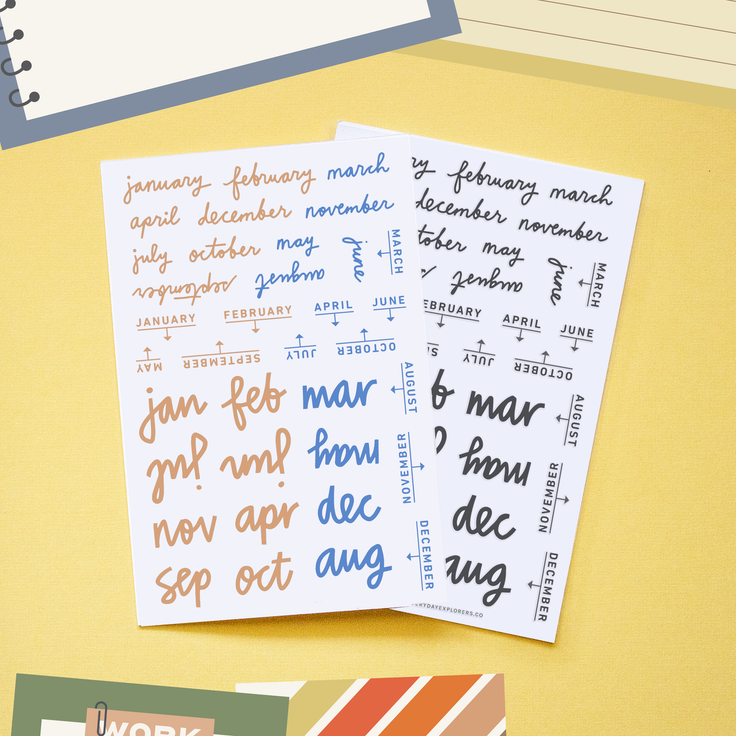 january february march
april december november
july october may june
september august
MARCH
JANUARY FEBRUARY APRIL JUNE
MAY SEPTEMBER JULY OCTOBER
jan feb mar
AUGUST
jul jun may
NOVEMBER
nov apr dec
sep oct aug
DECEMBER
february march
december november
may june
august
MARCH
APRIL JUNE
JULY OCTOBER
mar
AUGUST
may
NOVEMBER
dec
aug
DECEMBER
WORK